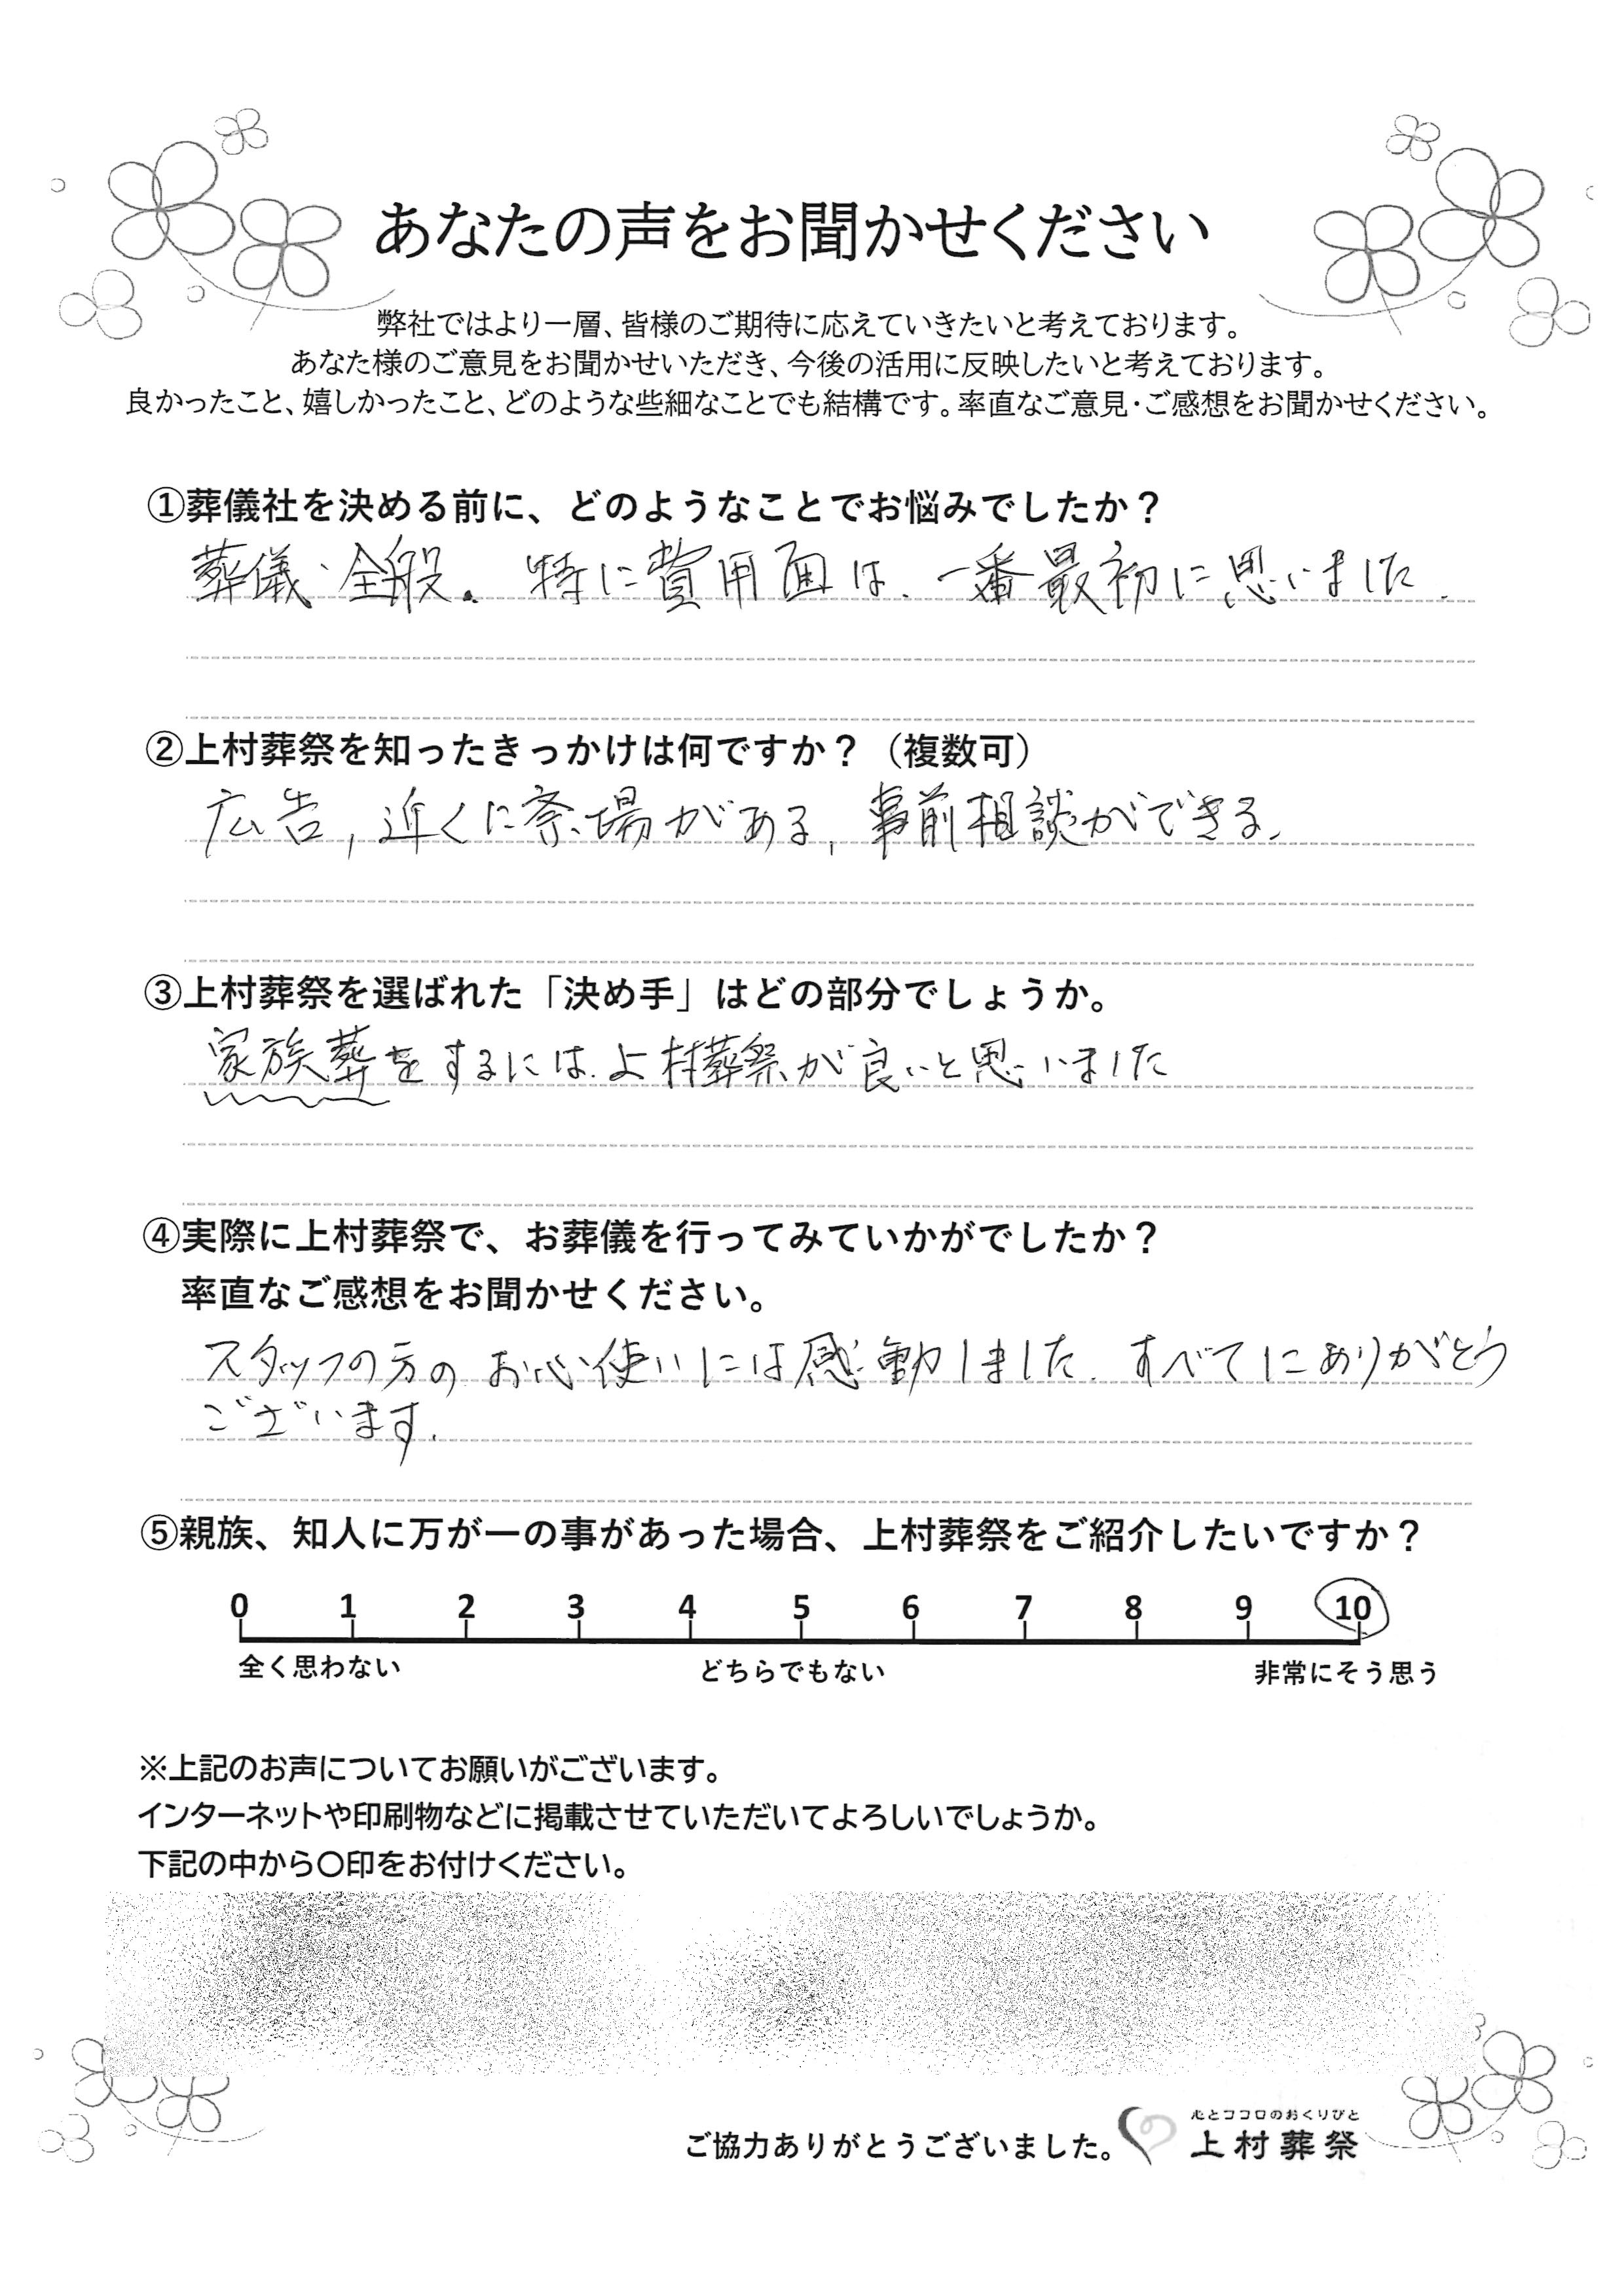 あなたの声をお聞かせください
弊社ではより一層、皆様のご期待に応えていきたいと考えております。
あなた様のご意見をお聞かせいただき、今後の活用に反映したいと考えております。
良かったこと、嬉しかったこと、どのような些細なことでも結構です。率直なご意見・ご感想をお聞かせください。
①葬儀社を決める前に、どのようなことでお悩みでしたか？
葬儀、全般。特に費用面は、一番最初に思いました.
②上村葬祭を知ったきっかけは何ですか？（複数可）
広告, 近くに斎場がある, 事前相談ができる.
③上村葬祭を選ばれた「決め手」はどの部分でしょうか。
家族葬をするには、上村葬祭が良いと思いました
④実際に上村葬祭で、お葬儀を行ってみていかがでしたか？
率直なご感想をお聞かせください。
スタッフの方の お心使いには感動しました. すべてにありがとう
ございます.
⑤親族、知人に万が一の事があった場合、上村葬祭をご紹介したいですか？
0 1 2 3 4 5 6 7 8 9 10
全く思わない どちらでもない 非常にそう思う
※上記のお声についてお願いがございます。
インターネットや印刷物などに掲載させていただいてよろしいでしょうか。
下記の中から〇印をお付けください。
心とココロのおくりびと
ご協力ありがとうございました。 上村葬祭